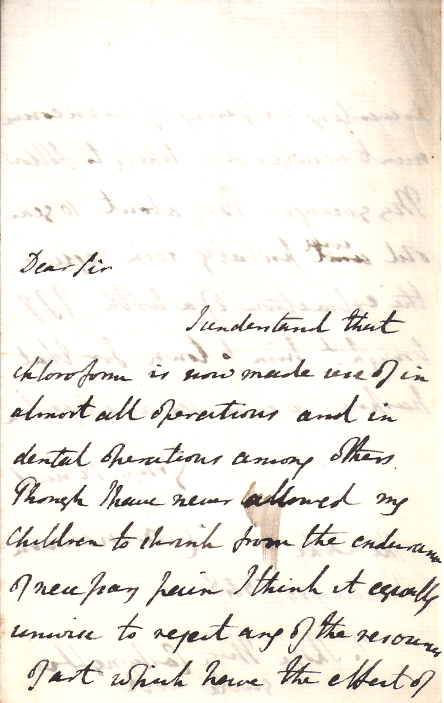 Dear Sir
I understand that
chloroform is now made use of in
almost all operations and in
dental operations among others.
Though I have never allowed my
children to shrink from the endurance
of necessary pain I think it equally
unwise to reject any of the resources
of art which have the effect of